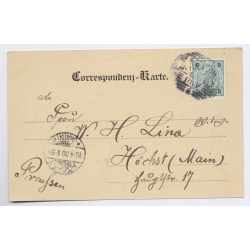 Correspondenz-Karte.
An
Frau
W. H. Lina
Höchst (Main)
Hauptstr. 17
Preussen